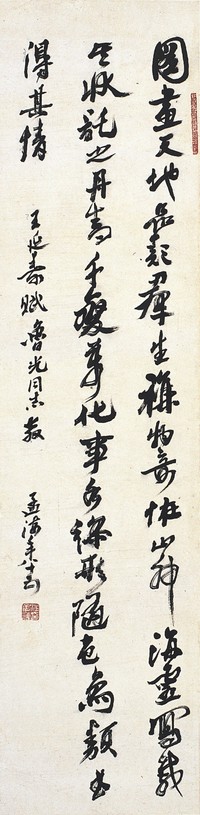 圖畫天地品類羣生雜物奇怪山神海靈寫載
其狀託之丹青千變萬化事各繆形隨色象類曲
得其情 王延壽賦 魯光同志教 孟海年八十